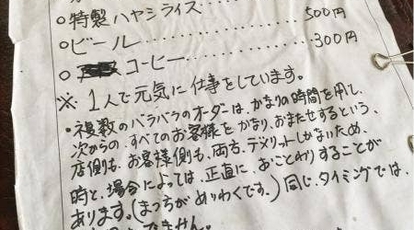 ○特製ハヤシライス
500円
○ビール
300円
○コーヒー
※1人で元気に仕事をしています。
・複数のバラバラのオーダーは、かなりの時間を用し、
次からの、すべてのお客様を、かなり、おまたせするという、
店側も、お客様側も、両方、デメリットしかないため、
時と、場合によっては、正直に、おことわりすることが
あります。(まっちがめいわくです。)同じ、タイミングでは、
ません。